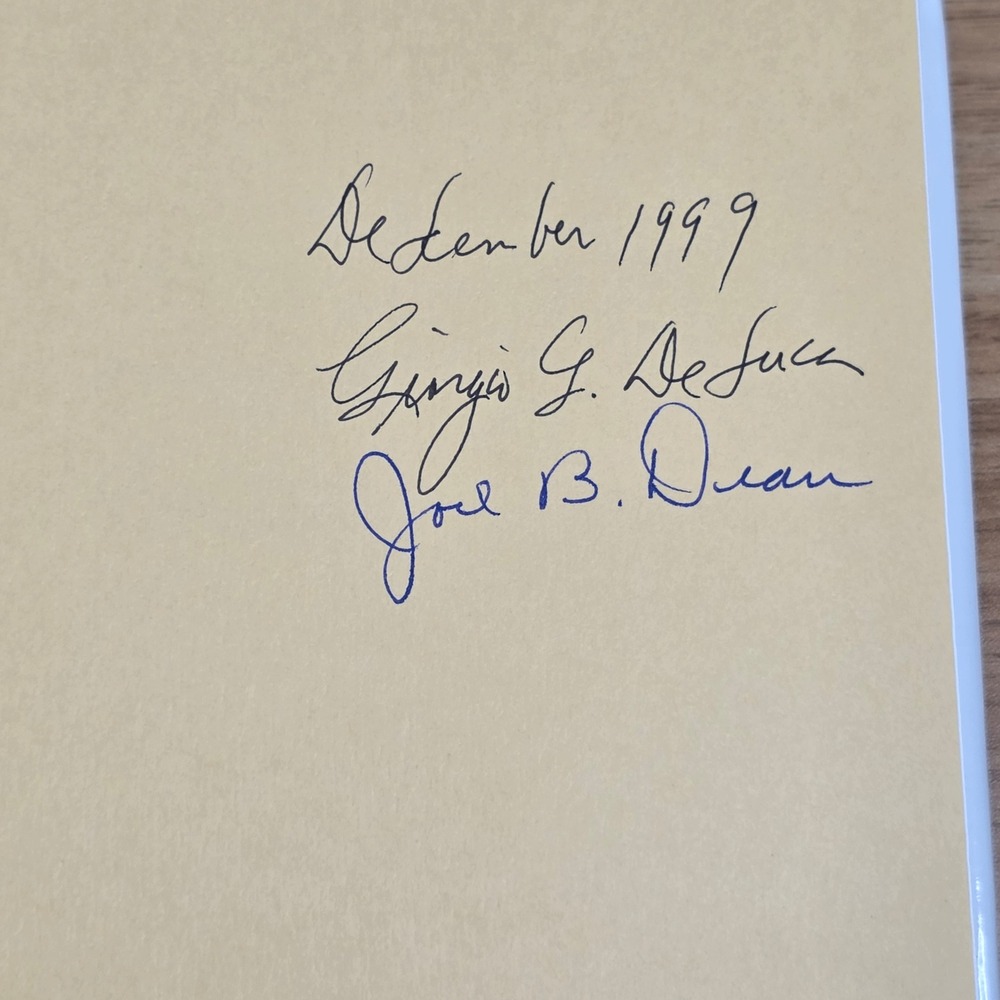 December 1999
Giorgio G. DeLuca
Joel B. Dean